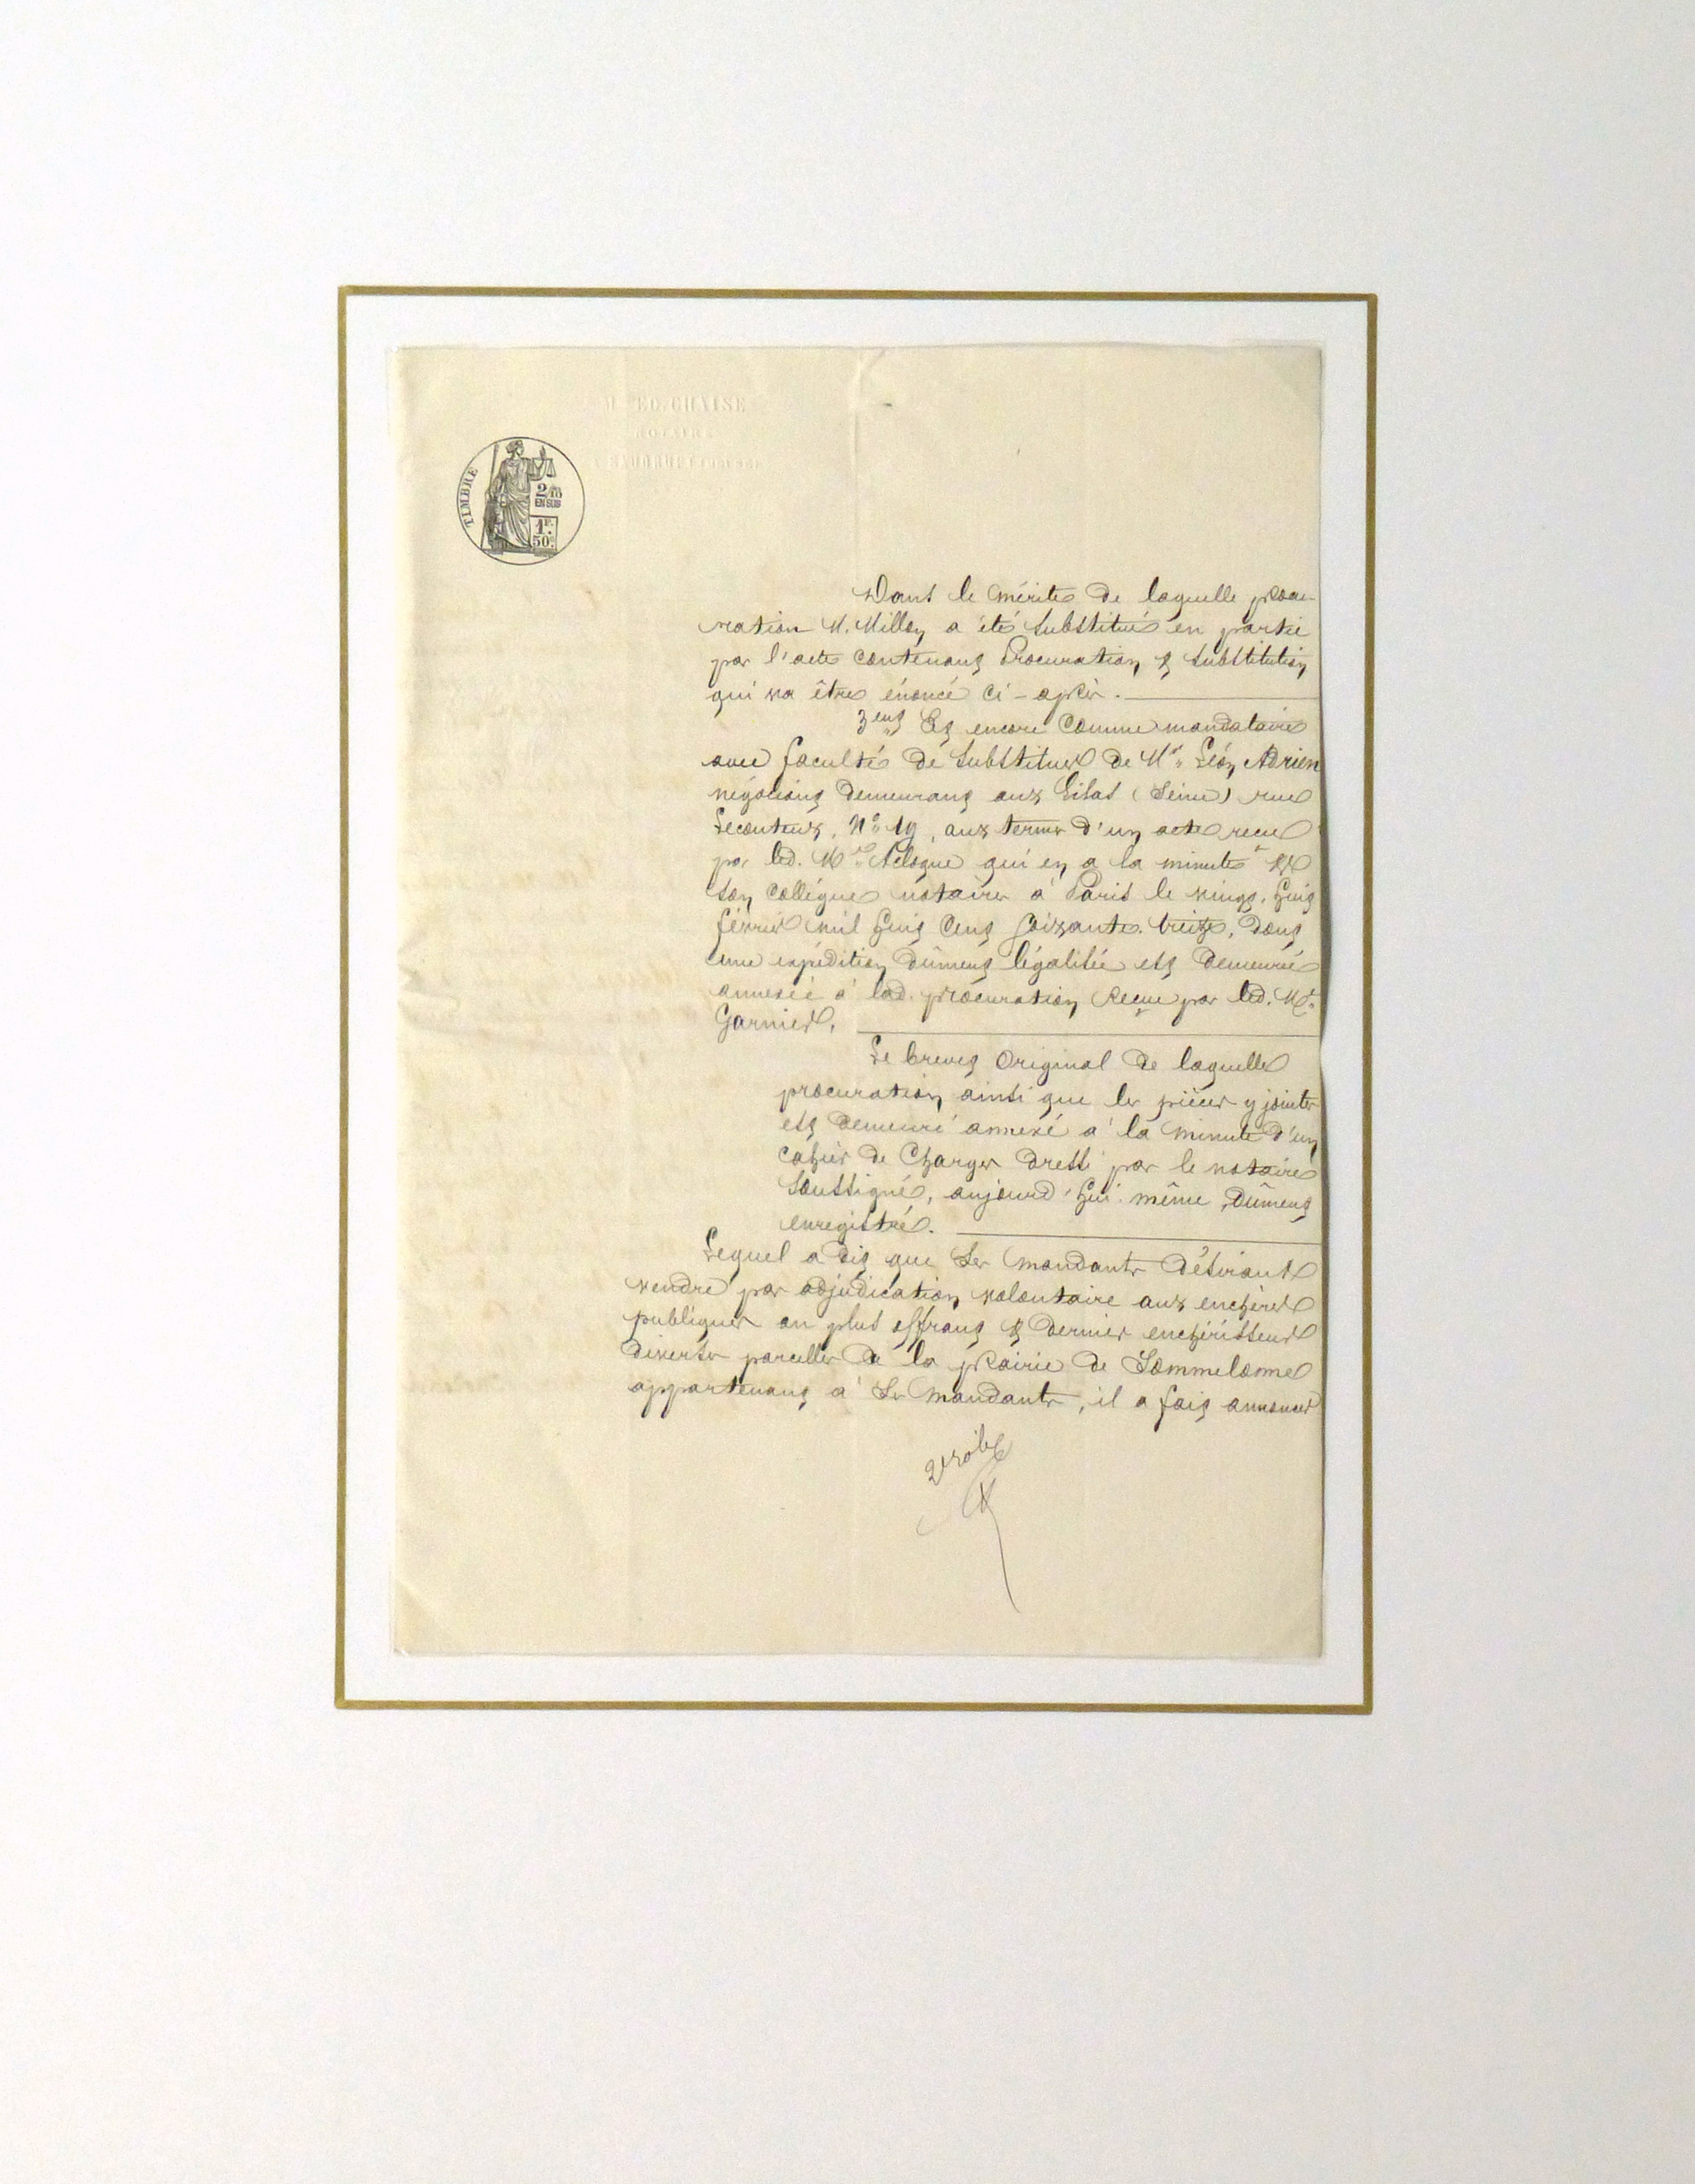 M ED. CHAISE
NOTAIRE
TIMBRE
2/10
EN SUS
1F.
50c.
Dans le mérite de laquelle procu-
ration M. Millon a été substitué en partie
par l'acte contenant Procuration & substitution
qui va être énoncé ci-après.
3ent Et encore comme mandataire
avec faculté de substituer de Mr Léon Adrien
négociant demeurant aux Lilas (Seine) rue
Lecouteux, No 19, aux termes d'un acte reçu
par led. Me qui en a la minute &
son collègue notaires à Paris le vingt-huit
février mil huit cent soixante-treize, dont
une expédition dûment légalisée est demeurée
annexée à lad. procuration reçue par led. Me
Garnier.
Le brevet original de laquelle
procuration ainsi que les pièces y jointes
est demeuré annexé à la minute d'un
cahier de charges dressé par le notaire
soussigné, aujourd'hui même, dûment
enregistré.
Lequel a dit que ses mandants désirant
vendre par adjudication volontaire aux enchères
publiques au plus offrant & dernier enchérisseur
diverses parcelles de la prairie de Sommelonne
appartenant à ses mandants, il a fait annoncer